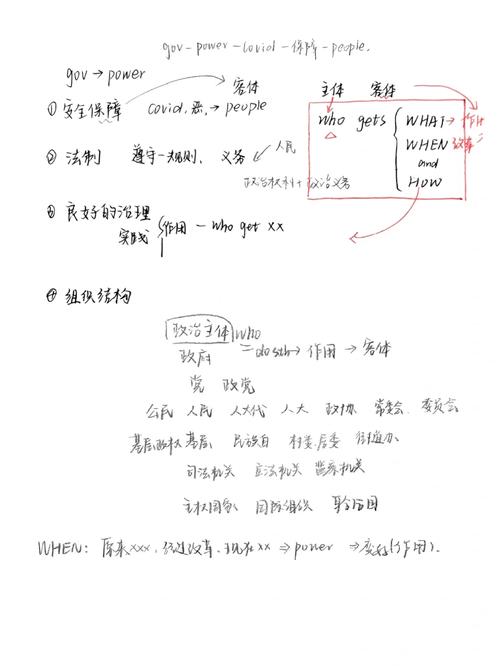 gov-power-covid-保障-people.
gov → power
客体
① 安全保障 covid,恶,→ people
主体 客体
who gets WHAT → 作用
WHEN 改革
and
HOW
② 法制 遵守一规则、义务 ↙ 人民
政治权利+政治义务
③ 良好的治理
实践 作用 - who get xx
④ 组织结构
政治主体 who
政府 = do sth → 作用 → 客体
党 政党
公民 人民 人大代 人大 政协 常委会 委员会
基层政权 基层 民族自 村委.居委 街道办
司法机关 立法机关 监察机关
主权国家 国际组织 联合国
WHEN: 原来xxx,经过改革,现在xx ⇒ power ⇒ 变好(作用).